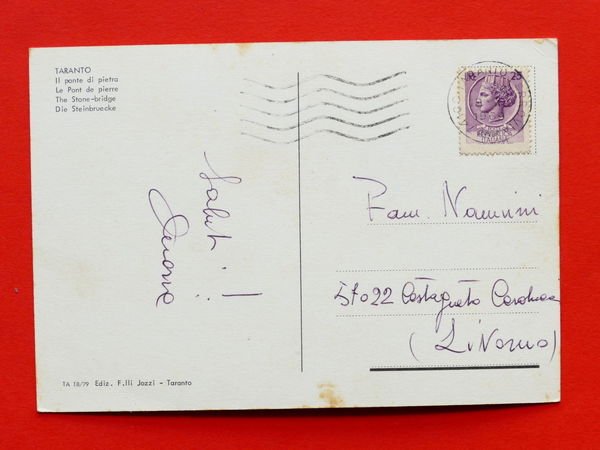 TARANTO
Il ponte di pietra
Le Pont de pierre
The Stone-bridge
Die Steinbruecke
Saluti!!
Fam. Nannini
57022 Castagneto Carducci
(Livorno)
TA 18/79 Ediz. F.lli Jozzi - Taranto
TARANTO
25